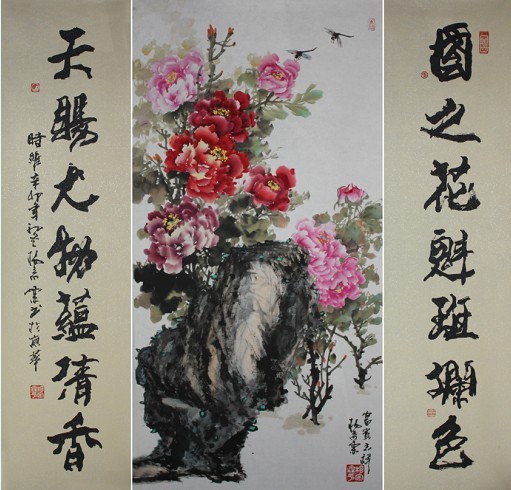 國之花魁斑斕色
富貴吉祥
天賜尤物蘊清香
時維辛卯年書於京華